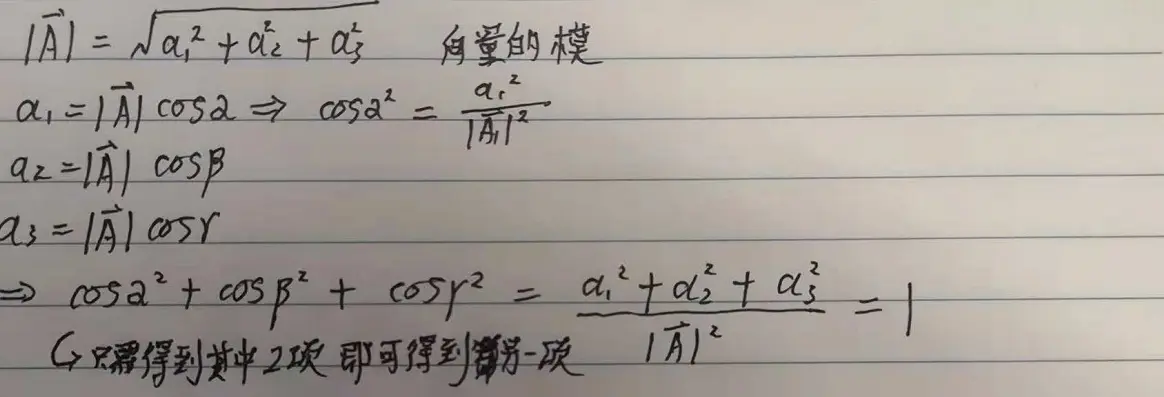 |A⃗| = √(a₁² + a₂² + a₃²) 向量的模
a₁ = |A⃗| cosα ⇒ cosα² = a₁² / |A⃗₁|²
a₂ = |A⃗| cosβ
a₃ = |A⃗| cosγ
⇒ cosα² + cosβ² + cosγ² = (a₁² + a₂² + a₃²) / |A⃗|² = 1
↪ 只需得到其中2项 即可得到另一项